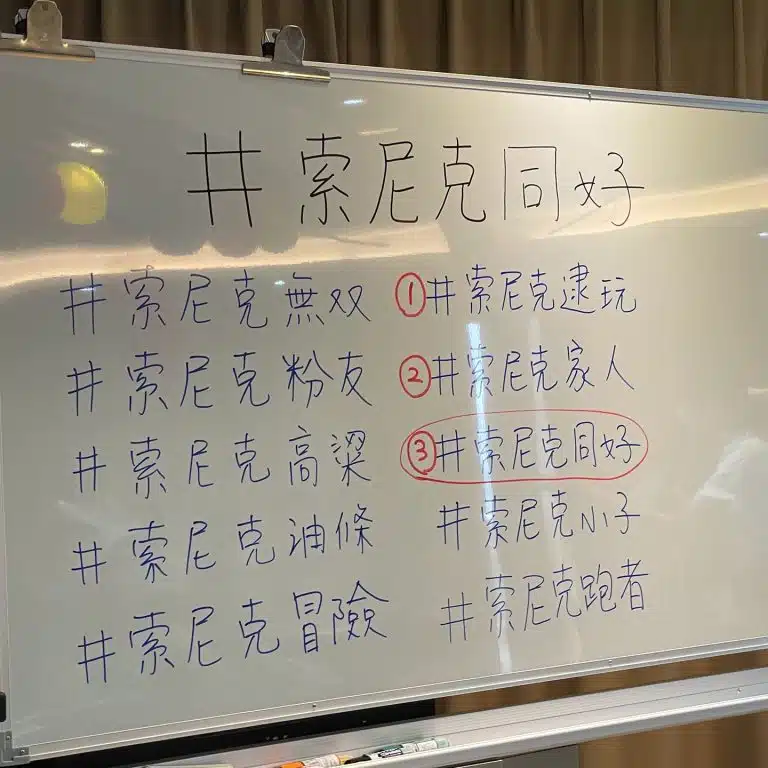 #索尼克同好
#索尼克無双
#索尼克粉友
#索尼克高粱
#索尼克油條
#索尼克冒險
①#索尼克逮玩
②#索尼克家人
③#索尼克同好
#索尼克小子
#索尼克跑者